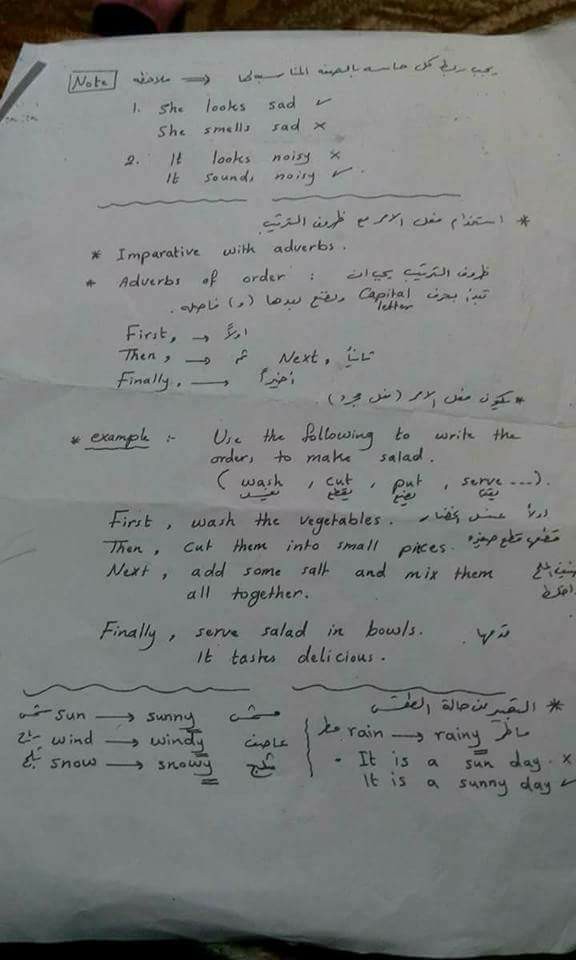 Note ملاحظه ⇐ يجب ربط كل حاسه بالصفه المناسبه لها
1. She looks sad ✓
She smells sad ×
2. It looks noisy ×
It sounds noisy ✓
* استخدام فعل الامر مع ظروف الترتيب
* Imparative with adverbs.
* Adverbs of order : ظروف الترتيب يجب ان
تبدأ بحرف Capital letter ونضع بعدها (و) فاصله.
First, → اولاً
Then, → ثم Next, ثانياً
Finally, → اخيراً
* يكون فعل الامر (فعل مجرد).
* example :- Use the following to write the
orders to make salad.
( wash , cut , put , serve ---).
يقطع يضع
First, wash the vegetables. اولاً غسل الخضار
Then, cut them into small pieces. قطعها قطع صغيره
Next, add some salt and mix them
all together.
Finally, serve salad in bowls. قدمها
It tastes delicious.
* التعبير عن حالة الطقس
sun → sunny مشمس
wind → windy عاصف
snow → snowy مثلج
مطر rain → rainy ماطر
• It is a sun day. ×
It is a sunny day ✓